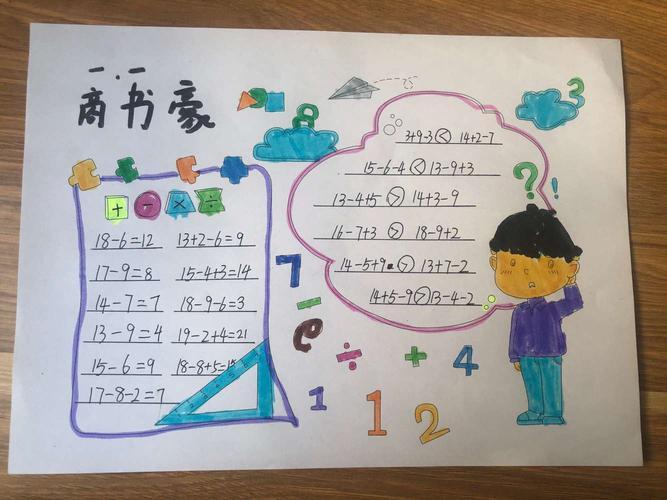 一.一
商书豪
8
3
+ - × ÷
? !
3+9-3 < 14+2-7
15-6-4 < 13-9+3
13-4+5 > 14+3-9
16-7+3 > 18-9+2
14-5+9 > 13+7-2
14+5-9 > 13-4-2
18-6=12 13+2-6=9
17-9=8 15-4+3=14
14-7=7 18-9-6=3
13-9=4 19-2+4=21
15-6=9 18-8+5=15
17-8-2=7
7
-
÷ + 4
1 1 2